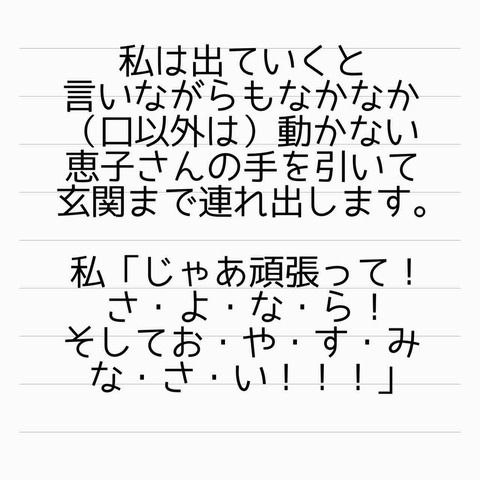 私は出ていくと
言いながらもなかなか
（口以外は）動かない
恵子さんの手を引いて
玄関まで連れ出します。
私「じゃあ頑張って！
さ・よ・な・ら！
そしてお・や・す・み
な・さ・い！！！」